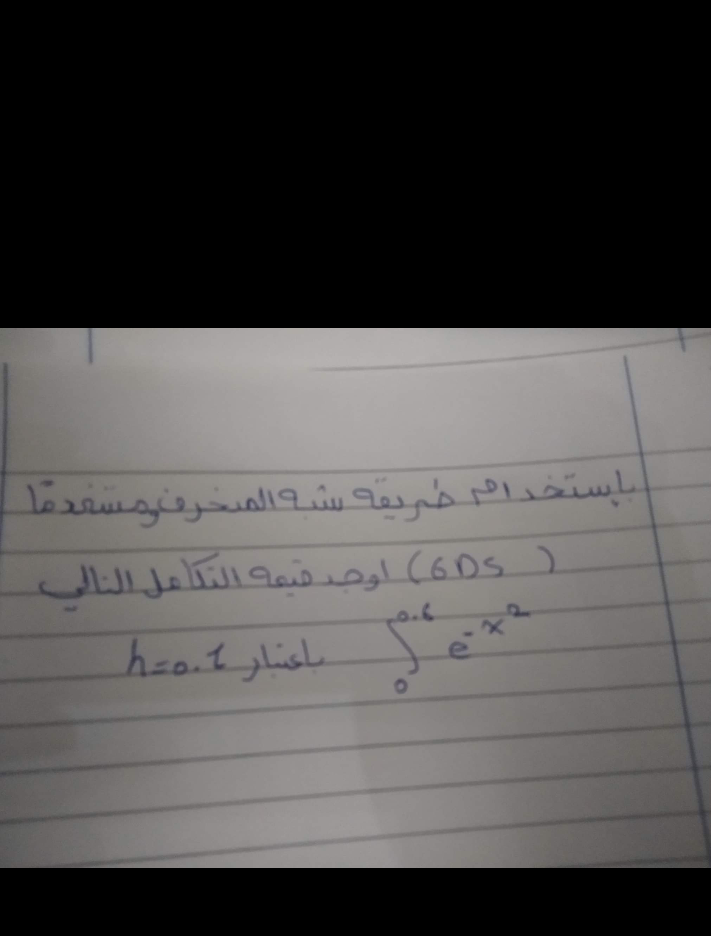 بإستخدام طريقة شبة المنحرف ومستخدمًا
(6DS) اوجد قيمة التكامل التالي
∫₀^0.6 e^-x^2 باعتبار h=0.1